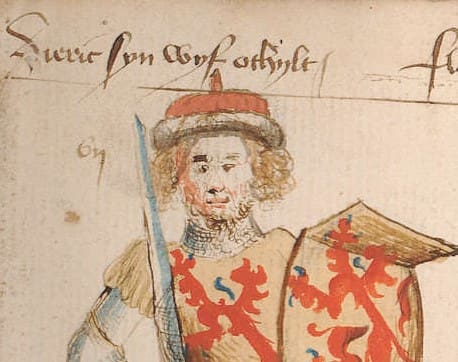 Dieric syn wyf othylt